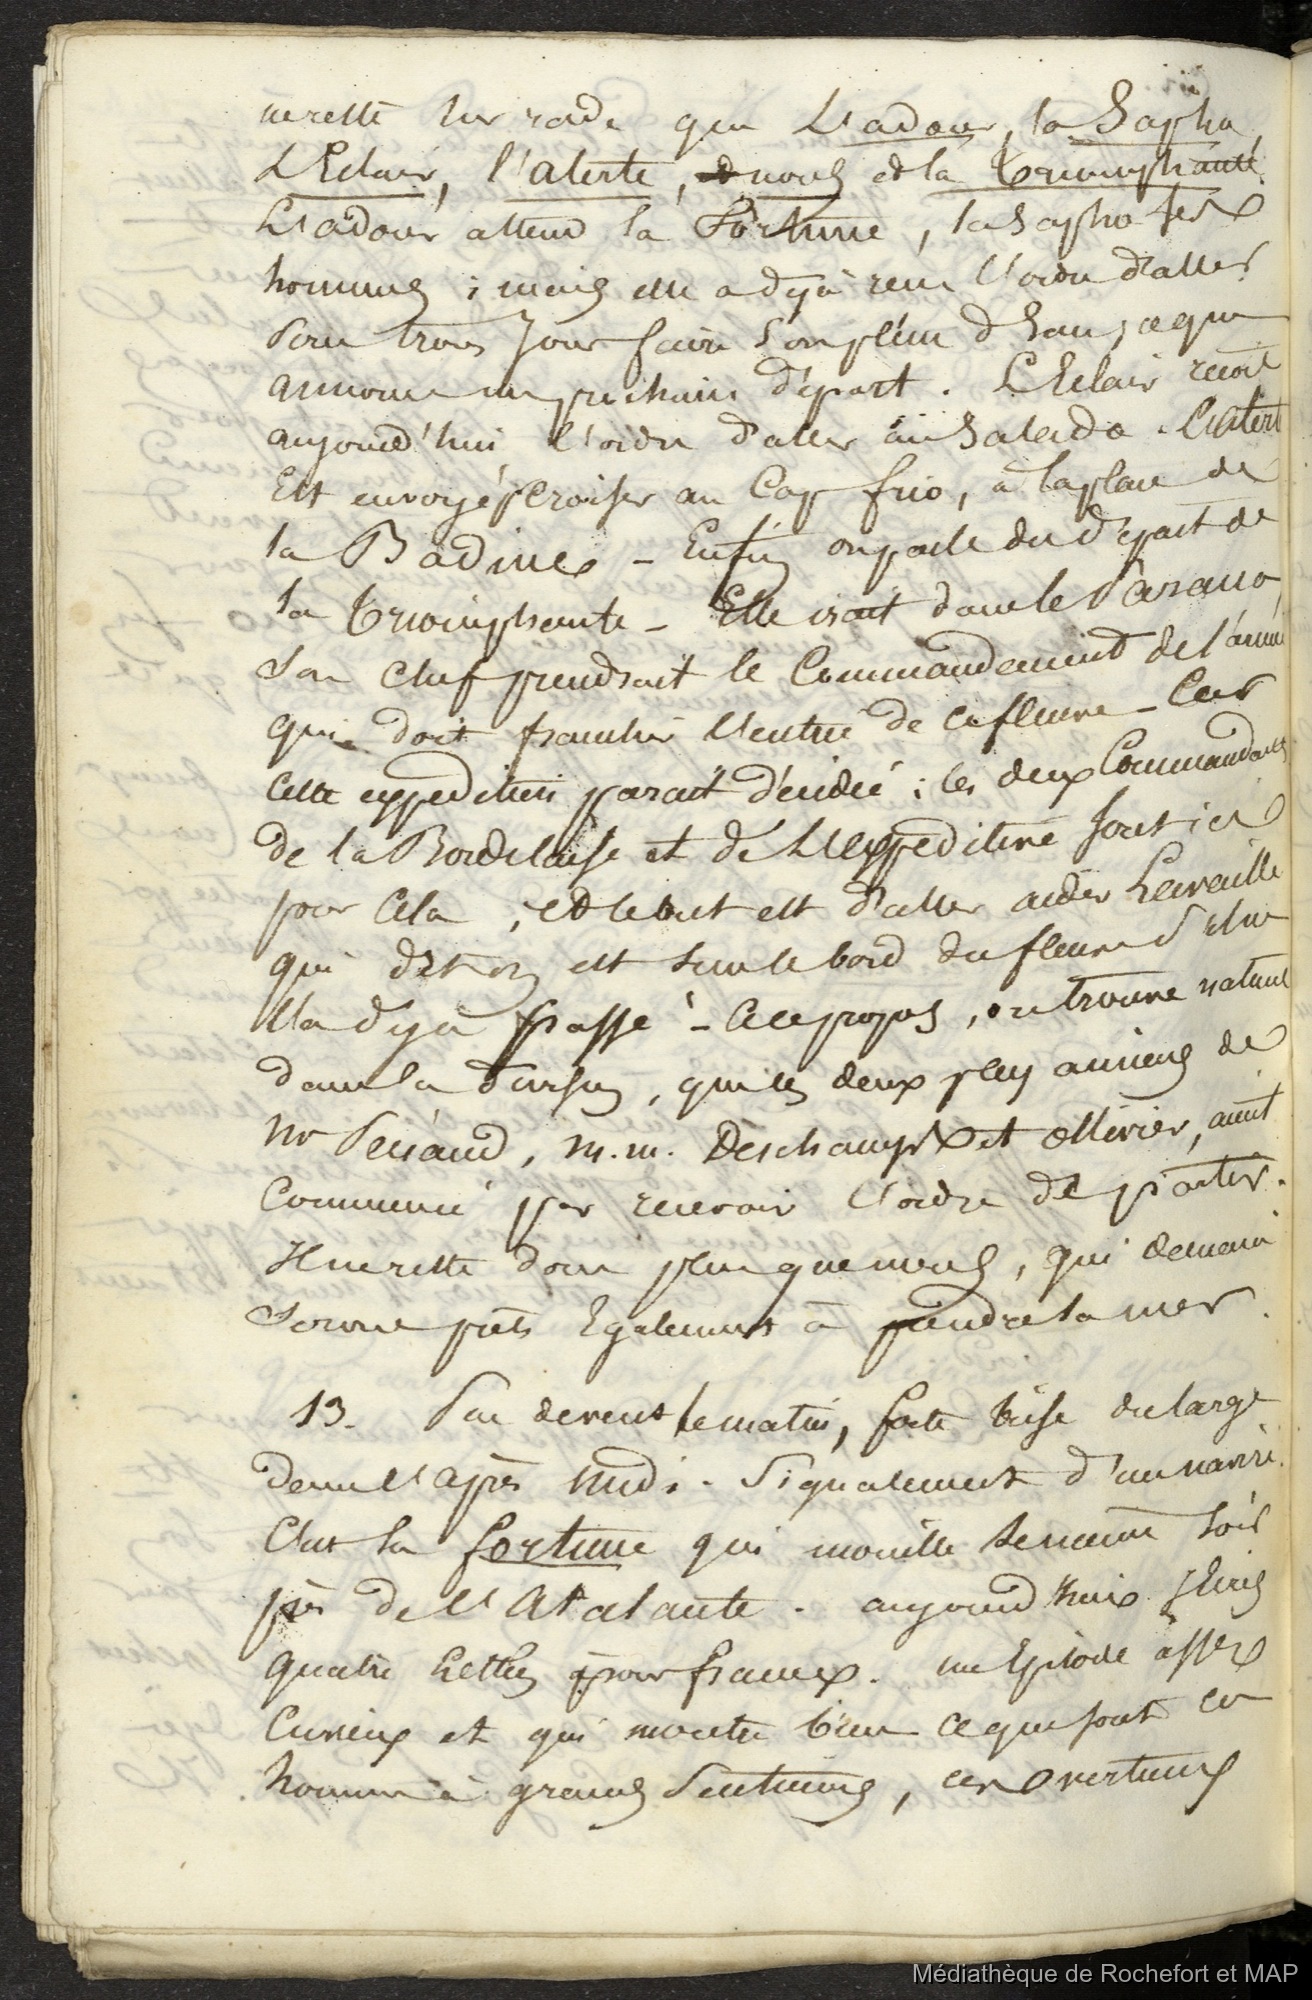 ne reste sur rade que L'adour, la Sapho
L'Eclair, l'alerte, nous et la Triomphante.
L'adour attend la Fortune, la Sapho ses
hommes ; mais elle a déjà reçu l'ordre d'aller
sous trois jours faire son plein d'Eau, ce qui
annonce un prochain départ. L'Eclair reçoit
aujourd'hui l'ordre d'aller au Salado. L'alerte
Est envoyé croiser au Cap frio, à la place de
la Badine - Enfin on parle du départ de
la Triomphante - Elle irait dans le Parana
Son chef prendrait le Commandement de l'armée
qui doit franchir l'entrée de ce fleuve - Car
Cette expedition parait décidée ; les deux Commandants
de la Bordelaise et de L'Expeditive sont ici
pour Cela ; et le but est d'aller aider Lavalle
qui dit on est sur le bord du fleuve S'il ne
l'a déjà passé - A ce propos, on trouve naturel
dans la division, que les deux plus anciens de
Mr Penaud, m.m. Deschamps et ollivier, aient
Commencé par recevoir l'ordre de partir.
Il ne reste donc plus que nous, qui demain
serons prêts Egalement à prendre la mer.
13. Peu de vent le matin, forte brise du large
dans l'après midi. Signalement d'un navire.
C'est la fortune qui mouille le même soir
près de l'Atalante. aujourd'hui j'Ecris
quatre Lettres pour france. un Episode assez
Curieux et qui montre bien ce que sont ces
hommes à grands Sentiments, ces vertueux
Médiathèque de Rochefort et MAP